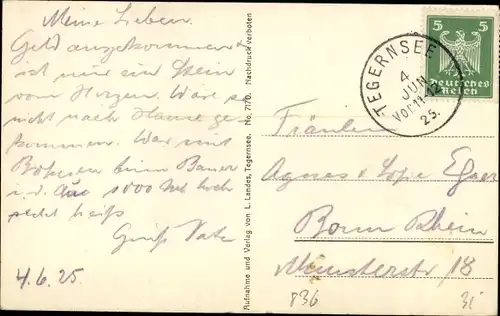 Meine Lieben.
Geld angekommen
ist mir ein Stein
vom Herzen. Wäre so
nicht nach Hause ge-
kommen. War mit
beim Bauer
1000 Mt hoch
heiß
Gruß Vater
4.6.25.
Aufnahme und Verlag von L. Landes, Tegernsee. No. 7170. Nachdruck verboten
TEGERNSEE
4.
JUN
Vor. 11-12
25.
5 5
Deutsches
Reich
Fräulein
Agnes & Sofie Egner
Bonn Rhein
Münsterstr. 18
836